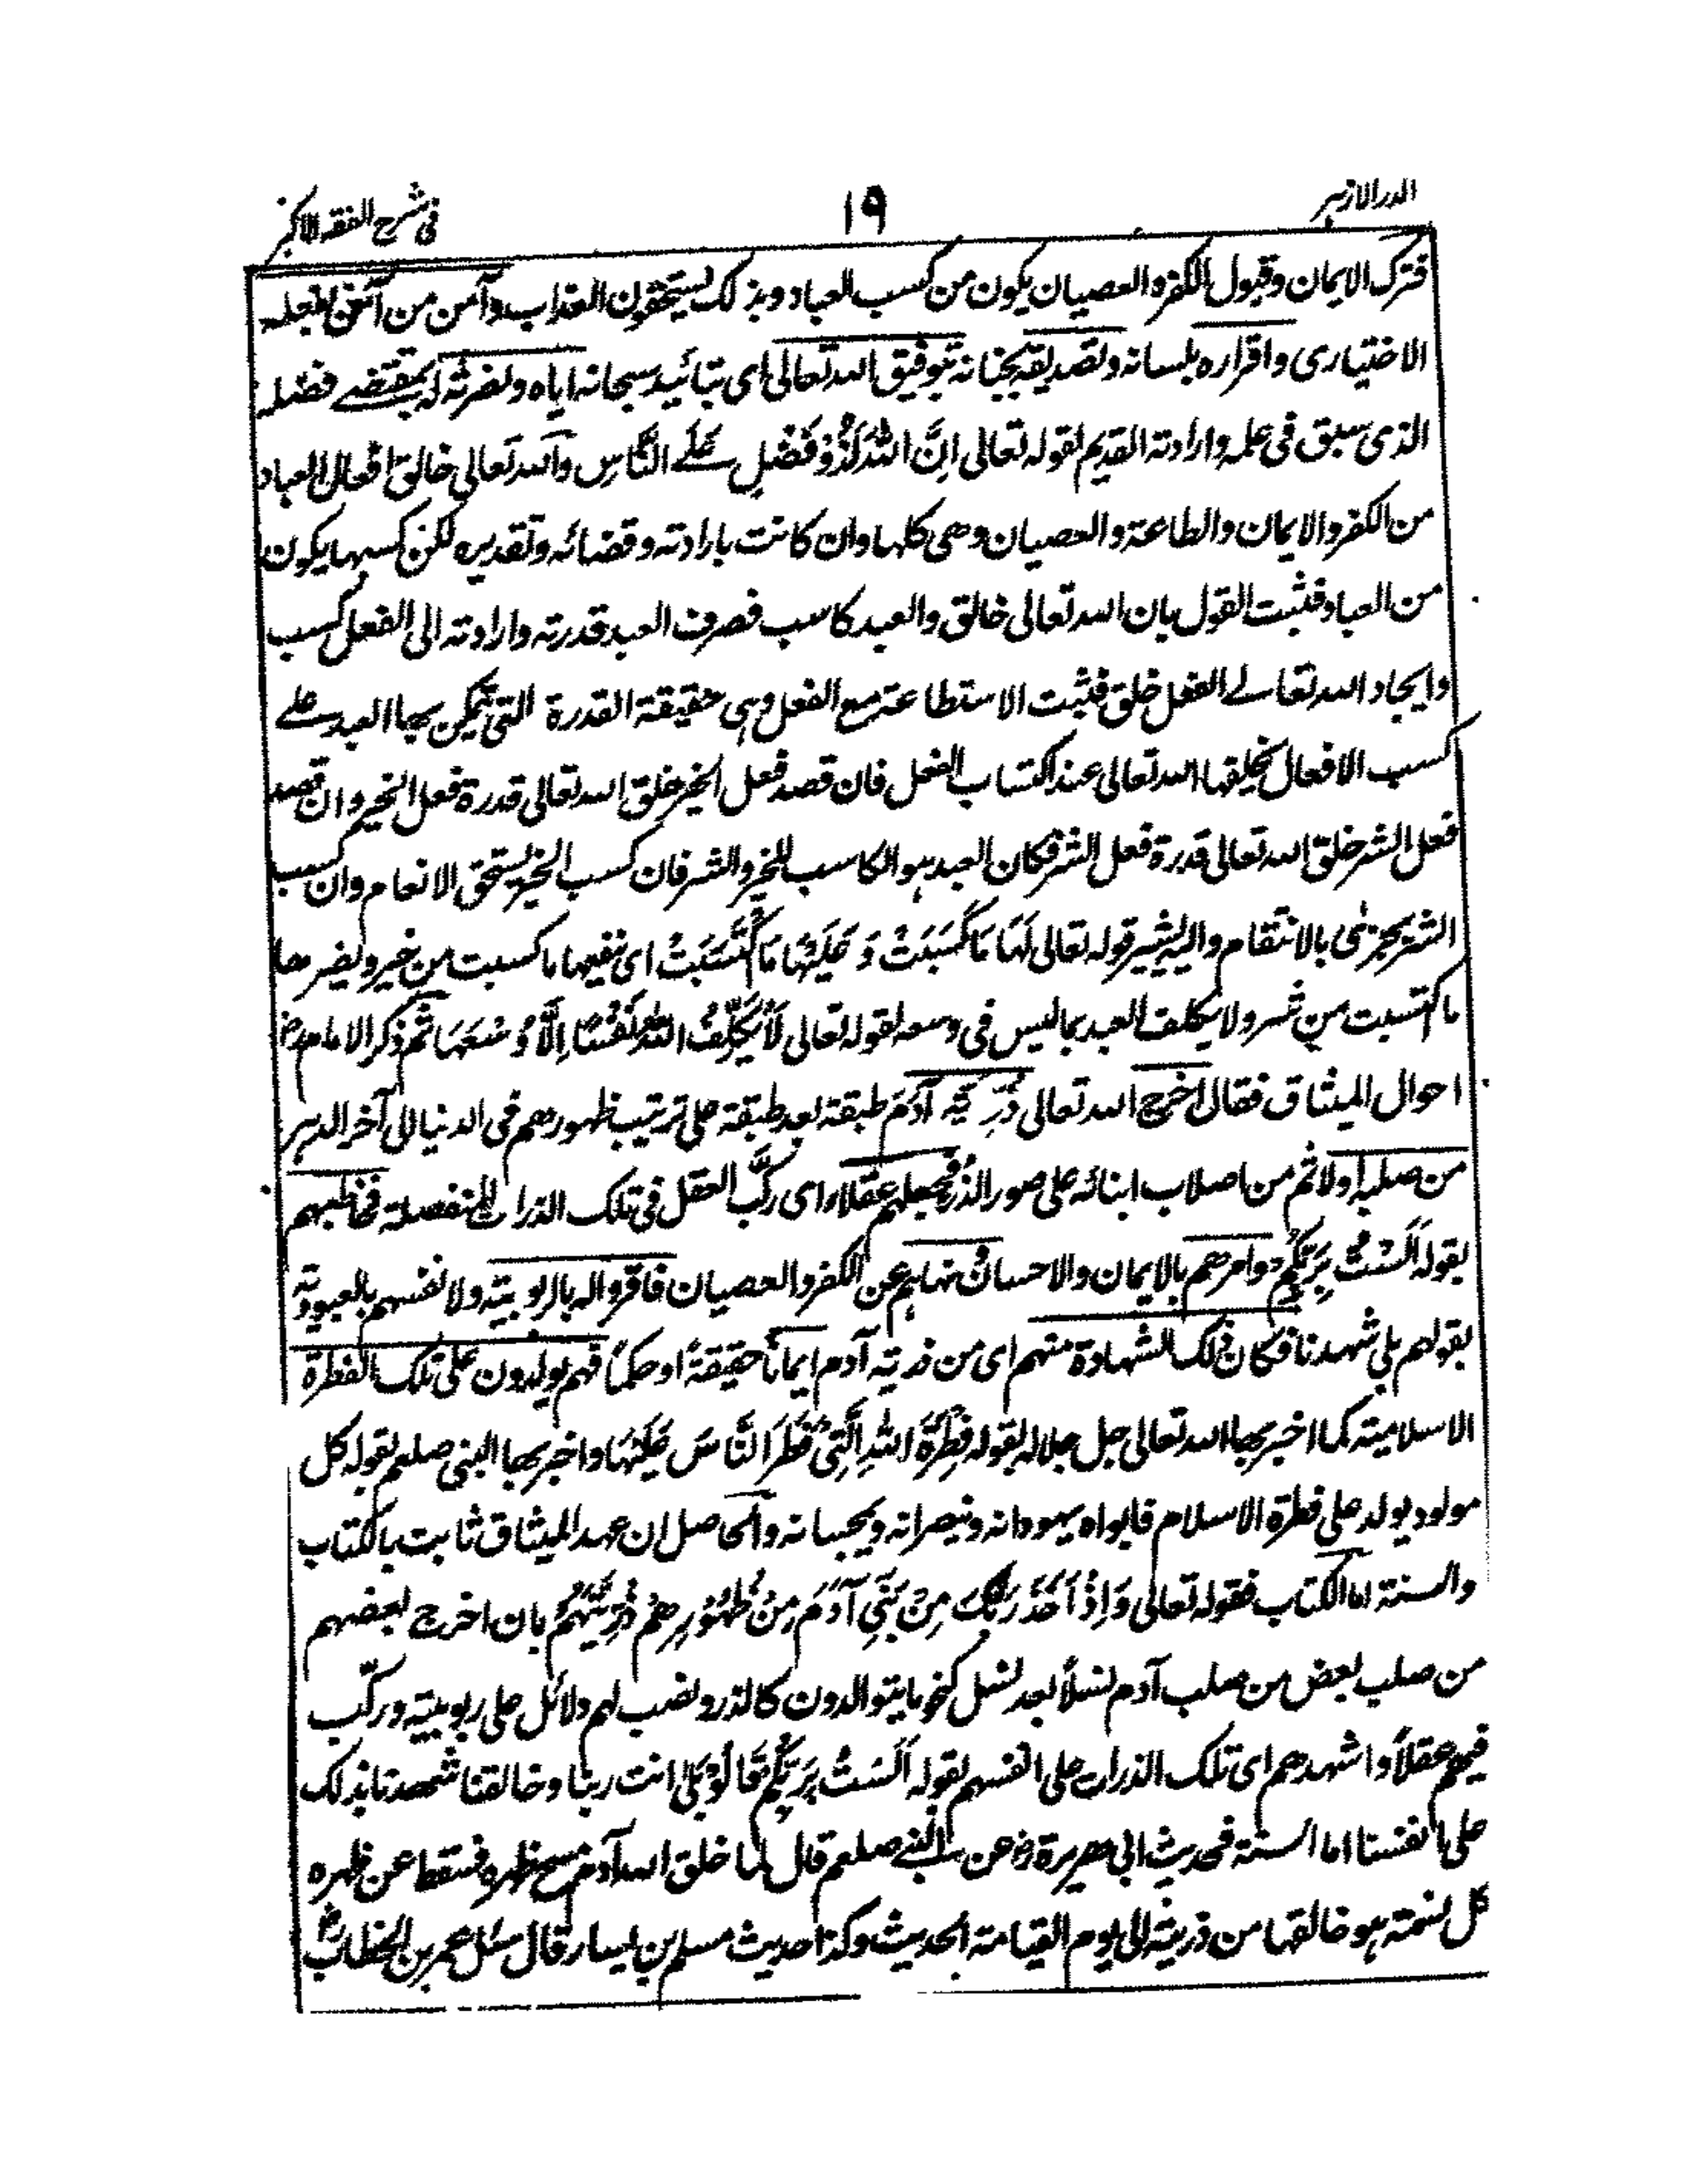 الدر الازہر
١٩
فی شرح الفقه الاکبر
فترک الایمان وقبول الکفر والعصیان یکون من کسب العباد وبذلک یستحقون العذاب وآمن من آمن بفعله
الاختیاری واقراره بلسانه وتصدیقه بجنانه بتوفیق الله تعالی ای بتائید سبحانه ایاه ونصرته له بمقتضے فضله
الذی سبق فی علمه وارادته القدیم لقوله تعالی اِنَّ اللّٰهَ لَذُوْ فَضْلٍ عَلَے النَّاسِ والله تعالی خالق افعال العباد
من الکفر والایمان والطاعة والعصیان وهی کلها وان کانت بارادته وقضائه وتقدیره لکن کسبها یکون
من العباد فثبت القول بان الله تعالی خالق والعبد کاسب فصرف العبد قدرته وارادته الی الفعل کسب
وایجاد الله تعالے الفعل خلق فثبت الاستطاعة مع الفعل وہی حقیقة القدرة التی یتمکن بها العبد علے
کسب الافعال یخلقها الله تعالی عند اکتساب الفعل فان قصد فعل الخیر خلق الله تعالی قدرة فعل الخیر وان قصد
فعل الشر خلق الله تعالی قدرة فعل الشر فکان العبد ہو الکاسب للخیر والشر فان کسب الخیر یستحق الانعام وان کسب
الشر یجزیٰ بالانتقام والیه یشیر قوله تعالی لَهَا مَا كَسَبَتْ وَ عَلَيْهَا مَا اكْتَسَبَتْ ای ینفعها ما کسبت من خیر ویضرها
ما اکتسبت من شر ولا یکلف العبد بما لیس فی وسعه لقوله تعالی لَا يُكَلِّفُ اللّٰهُ نَفْسًا اِلَّا وُسْعَهَا ثم ذکر الامام رح
احوال المیثاق فقال اخرج الله تعالی ذُرِّيَّةَ آدَمَ طبقة بعد طبقة علی ترتیب ظهورهم فی الدنیا الی آخر الدہر
من صلبه اولا ثم من اصلاب ابنائه علی صور الذر فجعلهم عقلاء ای رکَّب العقل فی تلک الذرات المنفصلة فخاطبهم
بقوله اَلَسْتُ بِرَبِّكُمْ وامرهم بالایمان والاحسان ونهاہم عن الکفر والعصیان فاقروا له بالربوبیة ولانفسهم بالعبودیة
بقولهم بلی شهدنا فکان ذلک الشهادة منهم ای من ذریة آدم ایماناً حقیقةً او حکماً فهم یولدون علی تلک الفطرة
الاسلامیة کما اخبر بها الله تعالی جل جلاله بقوله فِطْرَةَ اللّٰهِ الَّتِيْ فَطَرَ النَّاسَ عَلَيْهَا واخبر بها النبی صلعم بقوله کل
مولود یولد علی فطرة الاسلام فابواه یهودانه وینصرانه ویمجسانه والحاصل ان عهد المیثاق ثابت بالکتاب
والسنة اما الکتاب فقوله تعالی وَاِذْ اَخَذَ رَبُّكَ مِنْ بَنِيْ آدَمَ مِنْ ظُهُوْرِهِمْ ذُرِّيَّتَهُمْ بان اخرج بعضهم
من صلب بعض من صلب آدم نسلاً بعد نسل کنحو ما یتوالدون کالذر ونصب لهم دلائل علی ربوبیته ورکّب
فیهم عقلاً واشهدهم ای تلک الذرات علی انفسهم بقوله اَلَسْتُ بِرَبِّكُمْ قَالُوْا بَلٰى انت ربنا وخالقنا شهدنا بذلک
علی انفسنا اما السنة فحدیث ابی هریرة رض عن النبے صلعم قال لما خلق الله آدم مسح ظهره فسقط عن ظهره
کل نسمة ہو خالقها من ذریته الی یوم القیامة الحدیث وکذا حدیث مسلم بن یسار قال سئل عمر بن الخطاب رض